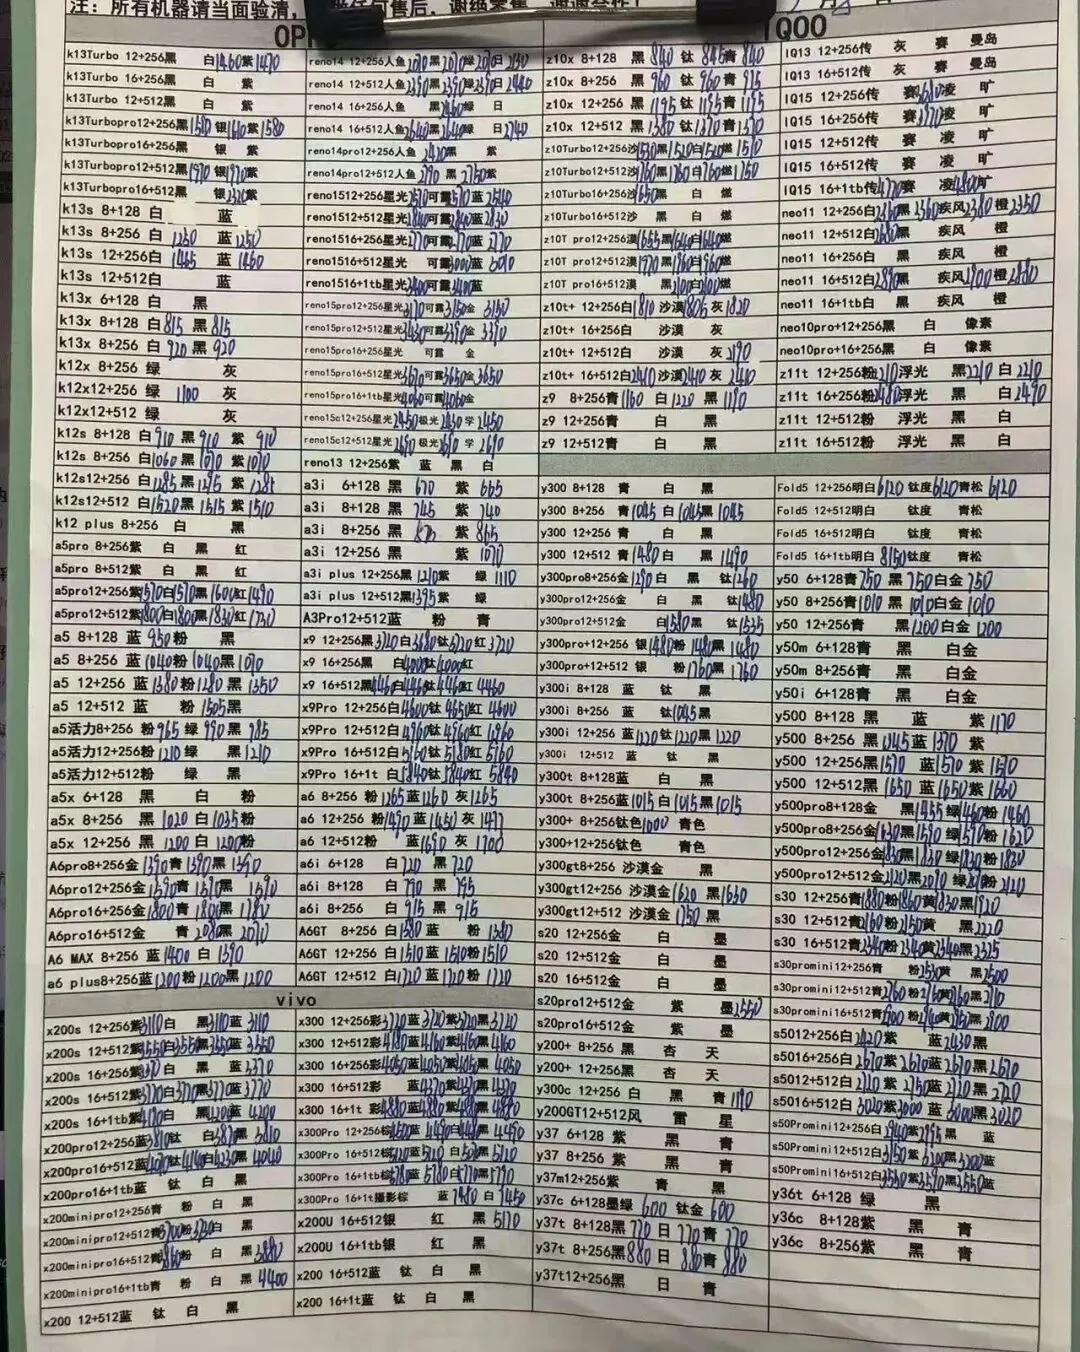 注：所有机器请当面验清，
OP
IQOO
k13Turbo 12+256黑 白1460紫1470
k13Turbo 16+256黑 白 紫
k13Turbo 12+512黑 白 紫
k13Turbopro12+256黑1510银1610紫1580
k13Turbopro16+256黑 银 紫
k13Turbopro12+512黑1970银1970紫
k13Turbopro16+512黑 银2320紫
k13s 8+128 白 蓝
k13s 8+256 白 1250 蓝1250
k13s 12+256白1465 蓝1460
k13s 12+512白 蓝
k13x 6+128 白 黑
k13x 8+128 白815 黑815
k13x 8+256 白920 黑920
k12x 8+256 绿 灰
k12x12+256 绿 1100 灰
k12x12+512 绿 灰
k12s 8+128 白910 黑910 紫910
k12s 8+256 白1060黑1070紫1070
k12s12+256 白1285黑1295 紫1285
k12s12+512 白1520黑1515 紫1510
k12 plus 8+256 白 黑
a5pro 8+256紫 白 黑 红
a5pro 8+512紫 白 黑 红
a5pro12+256紫1570白1570黑1600红1490
a5pro12+512紫1800白1800黑1830红1730
a5 8+128 蓝 950粉 黑
a5 8+256 蓝1040粉1040黑1070
a5 12+256 蓝1380粉1280黑1350
a5 12+512 蓝 粉1505黑
a5活力8+256 粉965 绿 990黑 985
a5活力12+256粉1210 绿 黑1210
a5活力12+512粉 绿 黑
a5x 6+128 黑 白 粉
a5x 8+256 黑1020 白1035粉
a5x 12+256 黑1200白1200粉
A6pro8+256金1390青1390黑1390
A6pro12+256金1590青1590黑 1590
A6pro16+256金1800青1800黑1780
A6pro16+512金 青2080黑2070
A6 MAX 8+256 蓝1400 白1390
a6 plus8+256蓝1200粉1200黑1200
vivo
x200s 12+256紫3110白 黑3110蓝 3110
x200s 12+512紫3550白3550黑3550蓝 3550
x200s 16+256紫3370白 黑 蓝 3370
x200s 16+512紫3770白3770黑3770蓝 3770
x200s 16+1tb紫4170白 黑4200蓝 4200
x200pro12+256蓝3810钛 白3810黑 3810
x200pro16+512蓝4070钛4140白4230黑4040
x200pro16+1tb蓝 钛 白 黑
x200minipro12+256青 粉 白 黑
x200minipro12+512青3700粉3730白 黑
x200minipro16+512青3860粉 白 黑3880
x200minipro16+1tb青 粉 白 黑4400
x200 12+512蓝 钛 白 黑
reno14 12+256人鱼2070黑2070绿2070日2130
reno14 12+512人鱼2390黑2390绿2390日2440
reno14 16+256人鱼 黑2460绿 日
reno14 16+512人鱼2640黑2640绿 日2740
reno14pro12+256人鱼2420黑 紫
reno14pro12+512人鱼2790 黑2750紫
reno1512+256星光2510可露2510蓝2540
reno1512+512星光2840可露2840蓝2830
reno1516+256星光2770可露2770蓝2770
reno1516+512星光 可露3000蓝3010
reno1516+1tb星光3400可露3400蓝
reno15pro12+256星光3170可露3150金 3150
reno15pro12+512星光3430可露3390金 3390
reno15pro16+256星光 可露 金
reno15pro16+512星光3670可露3650金3650
reno15pro16+1tb星光4060可露4060金
reno15c12+256星光2450极光2430学2450
reno15c12+512星光2690极光2690 学2690
reno13 12+256紫 蓝 黑 白
a3i 6+128 黑 670 紫 665
a3i 8+128 黑 745 紫 740
a3i 8+256 黑 870 紫 865
a3i 12+256 黑 紫1070
a3i plus 12+256黑1210紫 绿 1110
a3i plus 12+512黑1395紫 绿
A3Pro12+512蓝 粉 青
x9 12+256黑3720白3680钛3720红3720
x9 16+256黑 白4000钛4000红
x9 16+512黑4460白4460钛4460红 4460
x9Pro 12+256白4600钛4650红 4600
x9Pro 12+512白4960钛4960红4960
x9Pro 16+512白5160钛5180红5160
x9Pro 16+1t 白5840钛5840红 5840
a6 8+256 粉1265蓝1260 灰1265
a6 12+256 粉1490蓝1450 灰1477
a6 12+512粉 蓝1690 灰1700
a6i 6+128 白720 黑720
a6i 8+128 白790 黑795
a6i 8+256 白915 黑 915
A6GT 8+256 白1380 蓝 粉 1380
A6GT 12+256 白1510蓝1510粉1510
A6GT 12+512 白1720 蓝1720粉 1720
x300 12+256彩3720蓝3720紫3720黑3720
x300 12+512彩4180蓝4160紫4160黑4160
x300 16+256彩4050蓝4050紫4050黑 4050
x300 16+512彩 蓝4370紫4370黑4370
x300 16+1t 彩4880蓝4880紫4880黑4880
x300Pro 12+256棕4500蓝4490白4480黑4490
x300Pro 16+512棕5120蓝5120 白5080黑5120
x300Pro 16+1tb棕5780蓝 5780白5770黑5790
x300Pro 16+1t摄影棕 蓝7480 白7450
x200U 16+512银 红 黑5170
x200U 16+1tb银 红 黑
x200 16+512蓝 钛 白 黑
x200 16+1t蓝 钛 白 黑
z10x 8+128 黑840 钛 845青840
z10x 8+256 黑960 钛 960青975
z10x 12+256 黑1195 钛1195青1195
z10x 12+512 黑1380 钛1370青1370
z10Turbo12+256沙1530黑1520白1520燃 1510
z10Turbo12+512沙1760黑1760白1760燃 1750
z10Turbo16+256沙1650黑 白 燃
z10Turbo16+512沙 黑 白 燃
z10T pro12+256漠1655黑1640白1640燃
z10T pro12+512漠1970黑1960白1960燃
z10T pro16+512漠 黑2100白2100燃
z10t+ 12+256白1810 沙漠1805灰1820
z10t+ 16+256白 沙漠 灰
z10t+ 12+512白 沙漠 灰2190
z10t+ 16+512白2410沙漠2410 灰2410
z9 8+256青1160 白1220 黑1190
z9 12+256青 白 黑
z9 12+512青 白 黑
y300 8+128 青 白 黑
y300 8+256 青1045 白1045黑1045
y300 12+256 青 白 黑
y300 12+512 青1480白 黑1490
y300pro8+256金1290白 黑 钛1260
y300pro12+256金 白 黑 钛1480
y300pro12+512金 白1580黑 钛1535
y300pro+12+256 银1480粉1480黑1480
y300pro+12+512 银 粉1760黑1760
y300i 8+128 蓝 钛 黑
y300i 8+256 蓝 钛1045黑
y300i 12+256 蓝1220钛1220黑1220
y300i 12+512 蓝 钛 黑
y300t 8+128蓝 白 黑
y300t 8+256蓝1015白1015黑1015
y300+ 8+256钛色1000 青色
y300+12+256钛色 青色
y300gt8+256 沙漠金 黑
y300gt12+256 沙漠金1620 黑1630
y300gt12+512 沙漠金1750黑
s20 12+256金 白 墨
s20 12+512金 白 墨
s20 16+512金 白 墨
s20pro12+512金 紫 墨2550
s20pro16+512金 紫 墨
y200+ 8+256 黑 杏 天
y200+ 12+256黑 杏 天
y300c 12+256 白 黑 青1190
y200GT12+512风 雷 星
y37 6+128 紫 黑 青
y37 8+256 紫 黑 青
y37m12+256紫 青 黑
y37c 6+128墨绿 600 钛金600
y37t 8+128黑770日770青770
y37t 8+256黑880日880青880
y37t12+256黑 日 青
IQ13 12+256传 灰 赛 曼岛
IQ13 16+512传 灰 赛 曼岛
IQ15 12+256传 赛3610凌 旷
IQ15 16+256传 赛3770凌 旷
IQ15 12+512传 赛 凌 旷
IQ15 16+512传 赛 凌 旷
IQ15 16+1tb传4770赛 凌4800旷
neo11 12+256白2360黑2360疾风2380橙2350
neo11 12+512白2680黑 疾风 橙
neo11 16+256白 黑 疾风 橙
neo11 16+512白2890黑 疾风2900橙2880
neo11 16+1tb白 黑 疾风 橙
neo10pro+12+256黑 白 像素
neo10pro+16+256黑 白 像素
z11t 12+256粉2210浮光 黑2210白2210
z11t 16+256粉2480浮光 黑 白2490
z11t 12+512粉 浮光 黑 白
z11t 16+512粉 浮光 黑 白
Fold5 12+256明白6120 钛度6120青松 6120
Fold5 12+512明白 钛度 青松
Fold5 16+512明白 钛度 青松
Fold5 16+1tb明白 8150钛度 青松
y50 6+128青750 黑 750白金 750
y50 8+256青1010 黑1010白金1010
y50 12+256青 黑1200白金 1200
y50m 6+128青 黑 白金
y50m 8+256青 黑 白金
y50i 6+128青 黑 白金
y500 8+128 黑 蓝 紫1170
y500 8+256 黑1345蓝1370 紫
y500 12+256黑1510 蓝1510 紫1510
y500 12+512黑1650 蓝1650紫1660
y500pro8+128金 黑1455 绿1460粉1460
y500pro8+256金1630黑1590 绿1590粉1620
y500pro12+256金1830黑1830 绿1830粉1830
y500pro12+512金2120黑2090 绿 粉2120
s30 12+256青1880粉1860黄1830黑1920
s30 12+512青2160粉2150黄 黑2220
s30 16+512青2340粉2340黄2340黑2325
s30promini12+256青 粉2530黄 黑2500
s30promini12+512青2760粉2760黄2760黑2710
s30promini16+512青2900粉2940黄2950黑2900
s5012+256白2420紫 蓝2430黑
s5016+256白2670紫2670蓝2670黑2670
s5012+512白2720 紫2750蓝2720黑2720
s5016+512白3020紫3000蓝3000黑3020
s50Promini12+256白2940紫2995黑 蓝
s50Promini12+512白3150紫3200黑3200蓝
s50Promini16+512白3550紫3590黑3550蓝
y36t 6+128 绿 黑
y36c 8+128紫 黑 青
y36c 8+256紫 黑 青